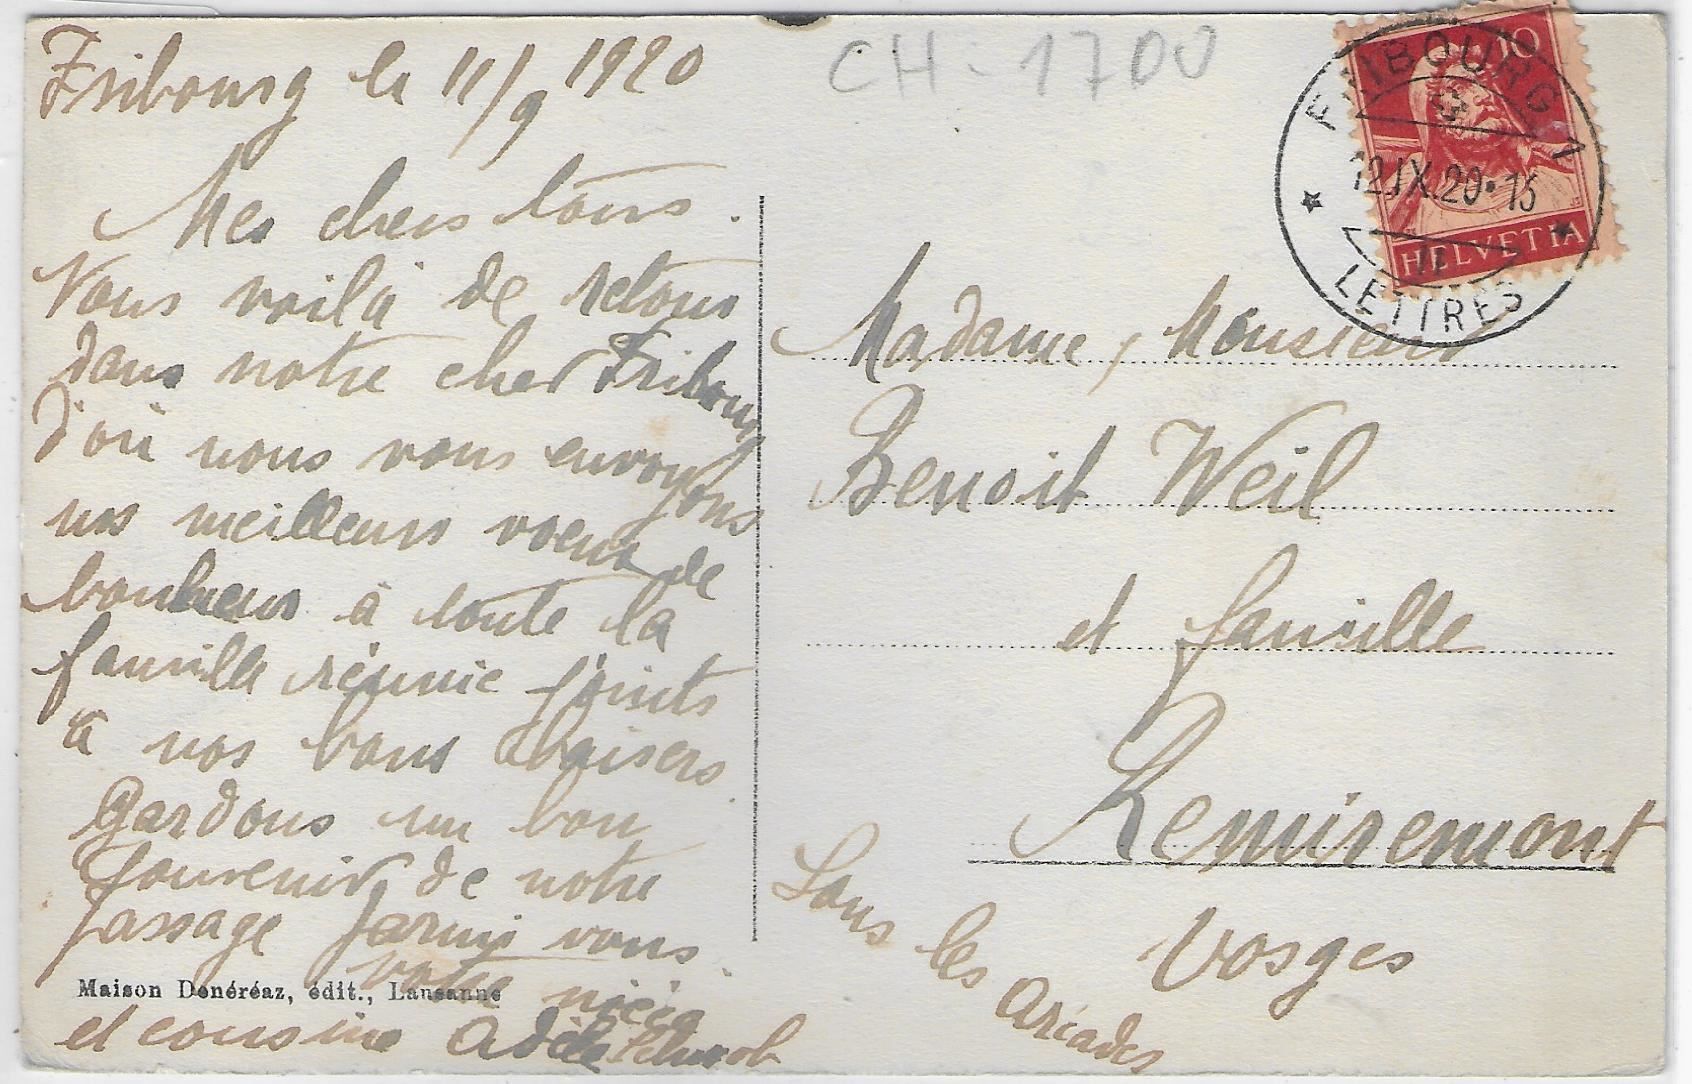 Fribourg le 11/9 1920
CH-1700
Mes chers tous.
Nous voilà de retour
dans notre cher Fribourg
d'où nous vous envoyons
nos meilleurs voeux de
bonheur à toute la
famille réunie joints
à nos bons baisers.
Gardons un bon
souvenir de notre
passage parmi vous.
votre nièce
et cousine Adèle
Maison Denéréaz, édit., Lausanne
10
HELVETIA
FRIBOURG 1
12.IX.20·15
LETTRES
Madame, Monsieur
Benoit Weil
et famille
Remiremont
Vosges
Sous les Arcades